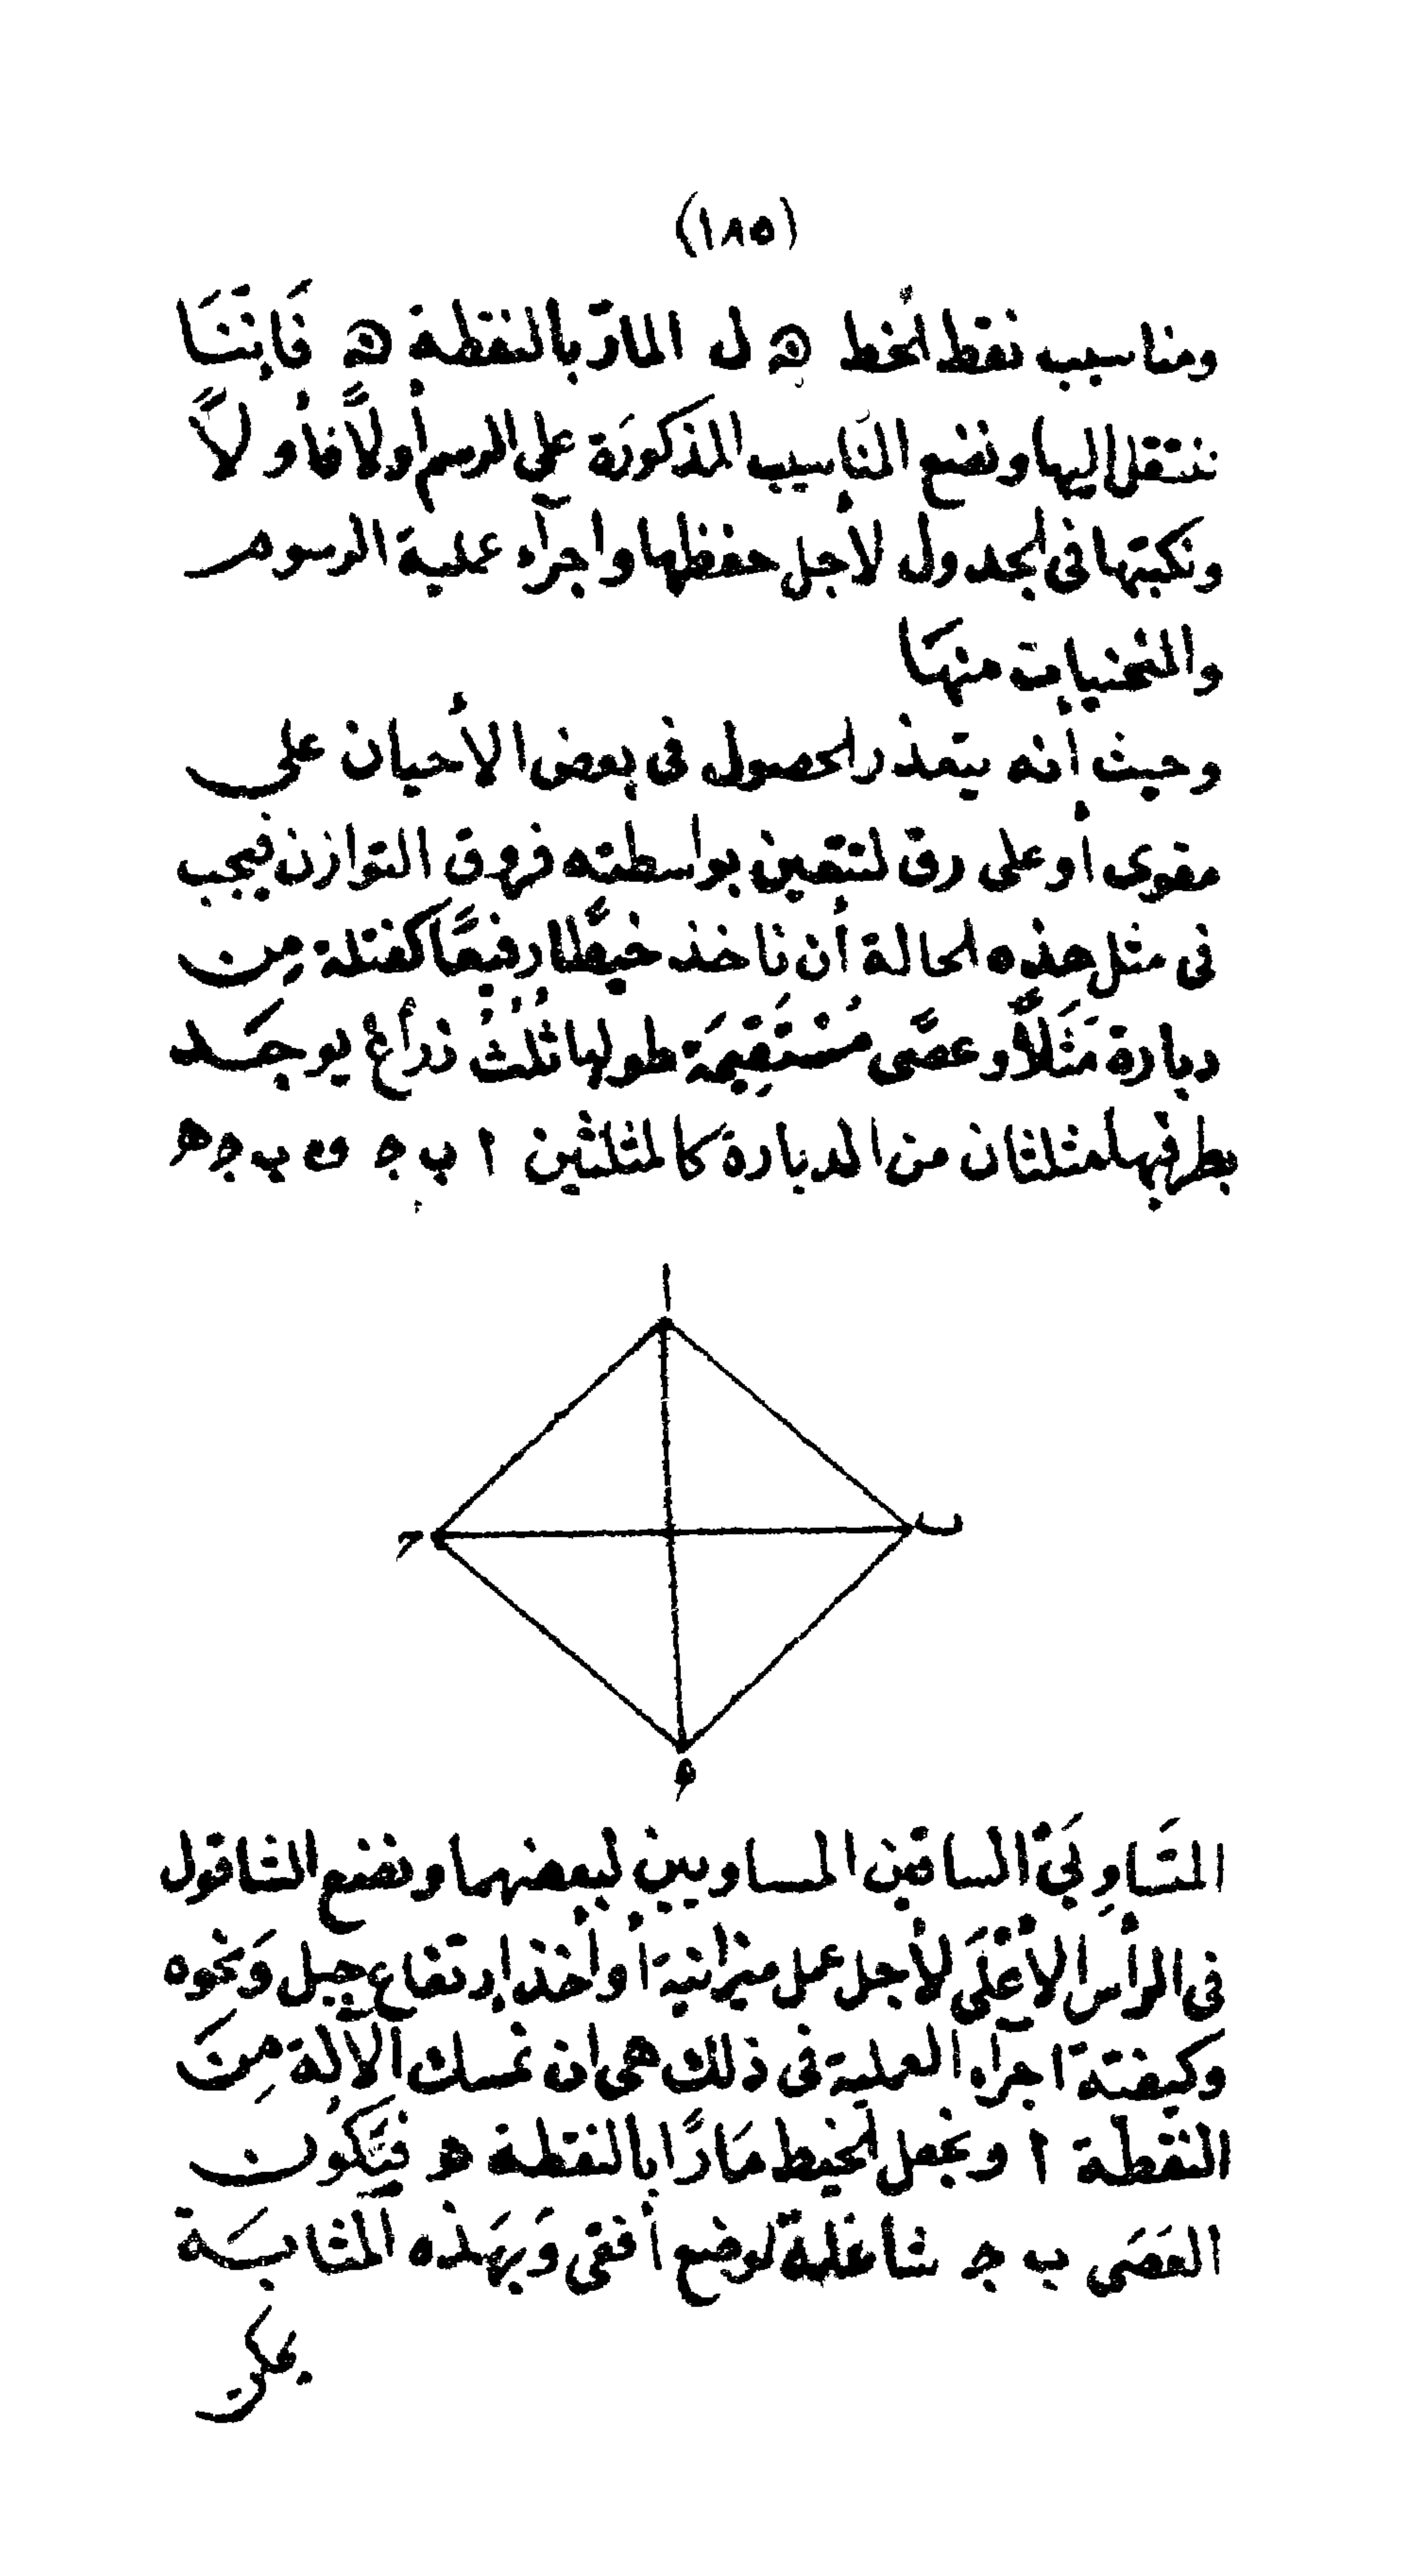 (١٨٥)
ومناسيب نقط الخط ﻫ ل المارّ بالنقطة ﻫ فَإِنَّنَا
ننتقل اليها ونضع المنَاسيب المذكورَة على الرسم أولاً فأولاً
ونكتبها فى الجدول لأجل حفظها واجرآء عملية الرسوم
والمنحنيات منهَا
وحيث أنه يتعذر الحصول فى بعض الأحيان على
مقوى أو على رق لتتعين بواسطته فروق التوازن فيجب
فى مثل هذه الحالة أن ناخذ خيطًا رفيعًا كفتلة مِن
دبارة مَثَلاً وعصًى مُسْتَقِيمَة طولها ثُلُثُ ذراع يوجَد
بطرفيها مثلثان من الدبارة كالمثلثين ا ب ج و ب ج ه
ا
ب
ح
ه
المتَساوِيَىّ الساقين المساويين لبعضهما ونضع الشاقول
فى الرأس الأعْلَى لأجل عمل ميزانية أو أخذ إرتفاع جبل وَنحوه
وكيفتة اجرآء العملية فى ذلك هى ان نمسك الآلة مِنَ
النقطة ا ونجعل الخيط مَارًّا بالنقطة ه فيَّكُون
العَصَى ب ج شاغلة لوضع أفقى وَبهَذه المثابَة
يمكن